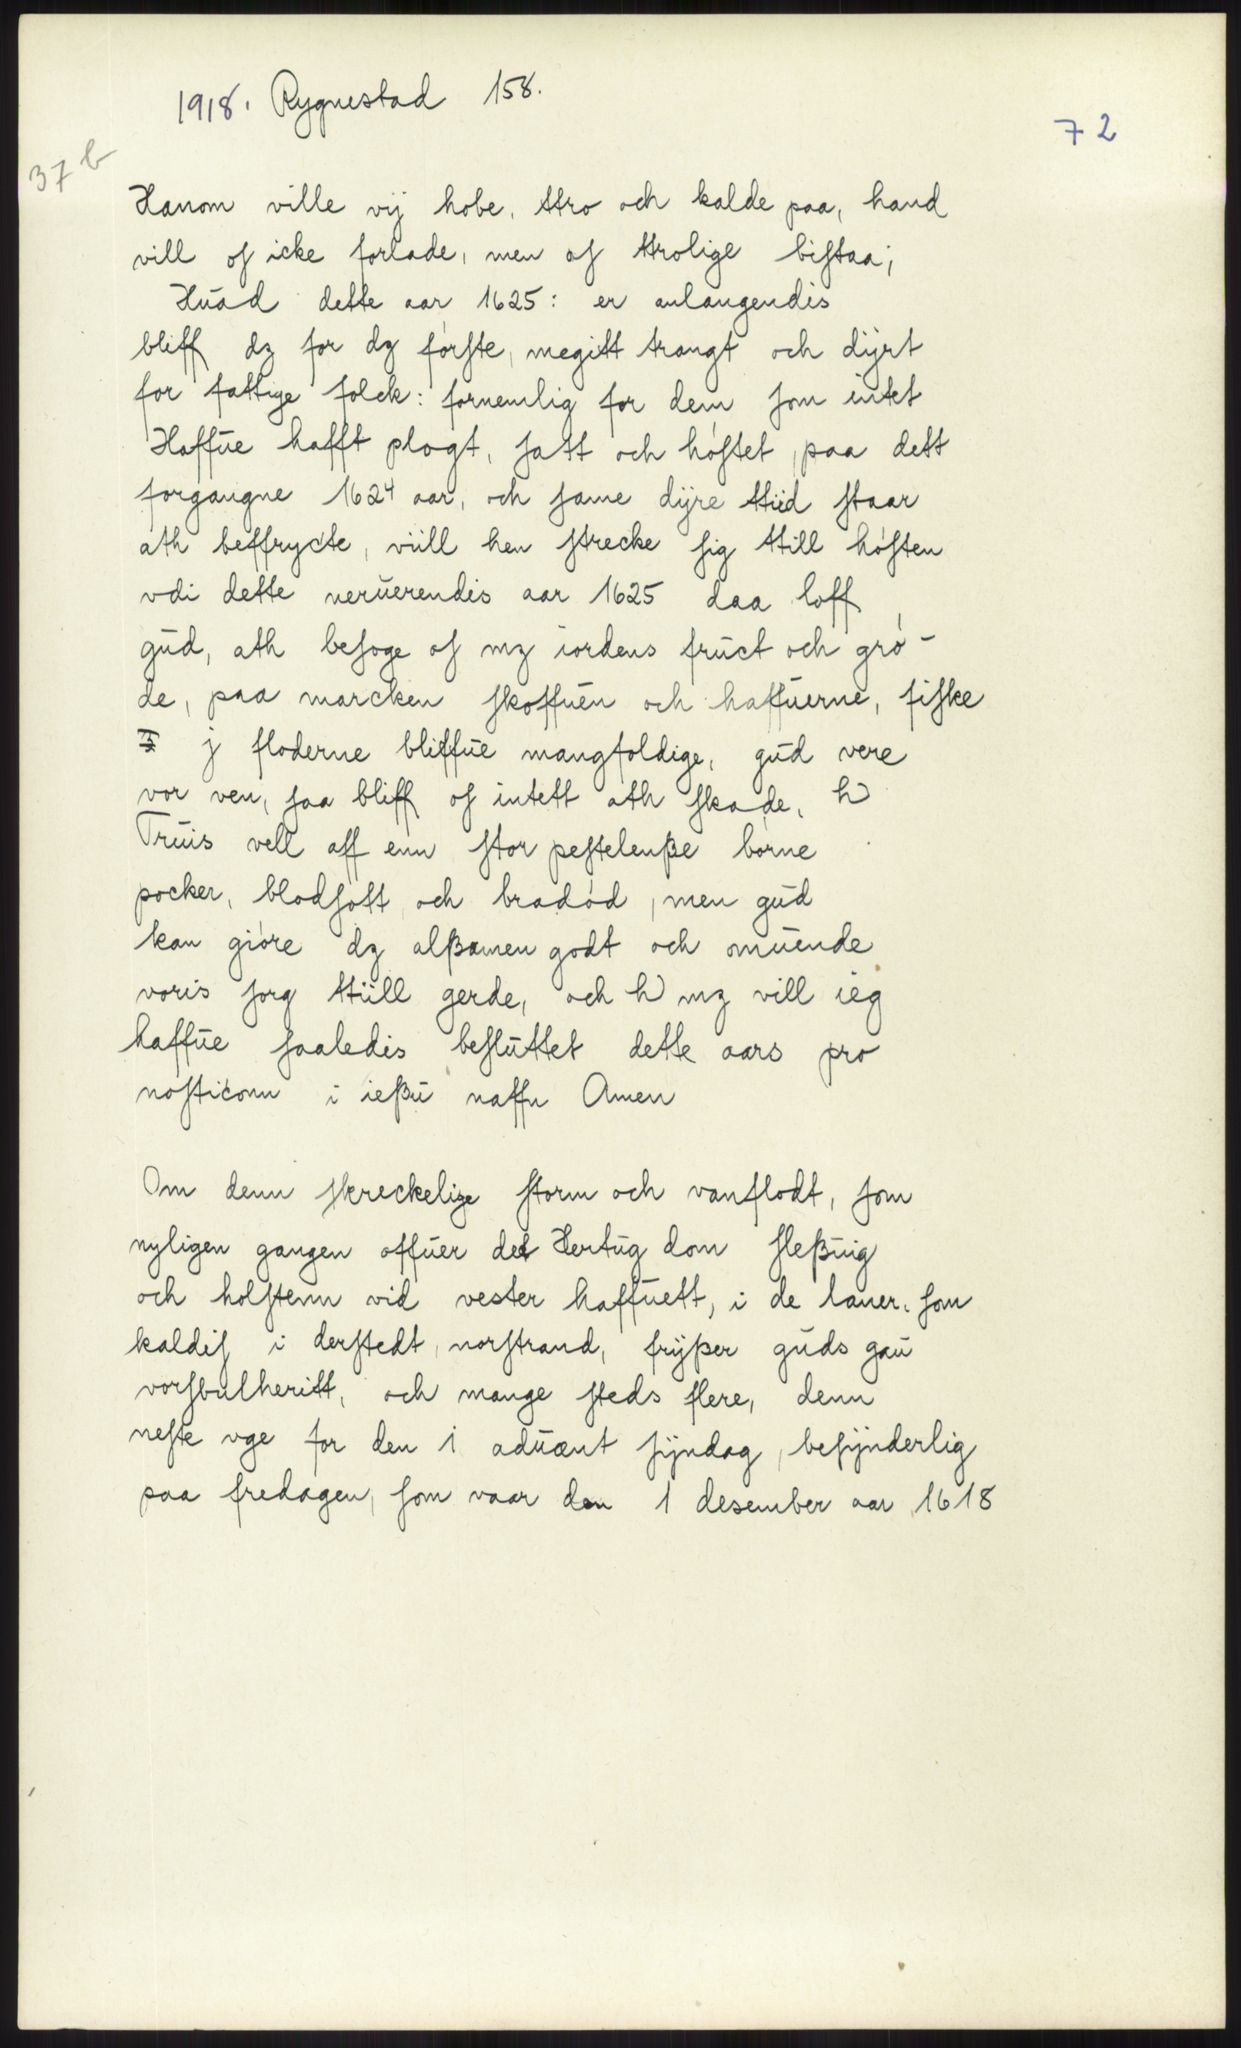 1918. Rygnestad 158.
72
37 b
Hanom ville vij hobe, ttro och kalde paa, hand
vill os icke forlade, men os ttrolige bistaa;
Huad dette aar 1625: er anlangendis
bliff dz for dz förste, megitt trangt och dÿrt
for fattige folck: fornemlig for dem som intet
Haffue hafft plogt, satt och höstet, paa dett
forgangne 1624 aar, och same dÿre ttiid staar
ath beffrycte, viill hen strecke sig ttill hösten
vdi dette neruerendis aar 1625 daa loff
gud, ath besoge os mz iordens fruct och grö-
de, paa marcken skoffuen och haffuerne, fiske
j floderne bliffue mangfoldige, gud vere
vor ven, saa bliff os intett ath skade, h
Truis vell aff enn stor pestelenße börne
pocker, blodsott och bradöd, men gud
kan giöre dz alßamen godt och omuende
voris sorg ttiill gerde, och h mz vill ieg
haffue saaledis besluttet dette aars pro
nosticonn i ießu naffn Amen
Om denn skreckelige storm och vanflodt, som
nyligen gangen offuer det Hertug dom sleßuig
och holstenn vid vester haffuett, i de laner, som
kaldis i derstedt, norstrand, frÿßer guds gau
vorsbulheritt, och mange steds flere, denn
neste vge for den 1 aduænt sÿndag, besÿnderlig
paa fredagen, som vaar den 1 desember aar 1618